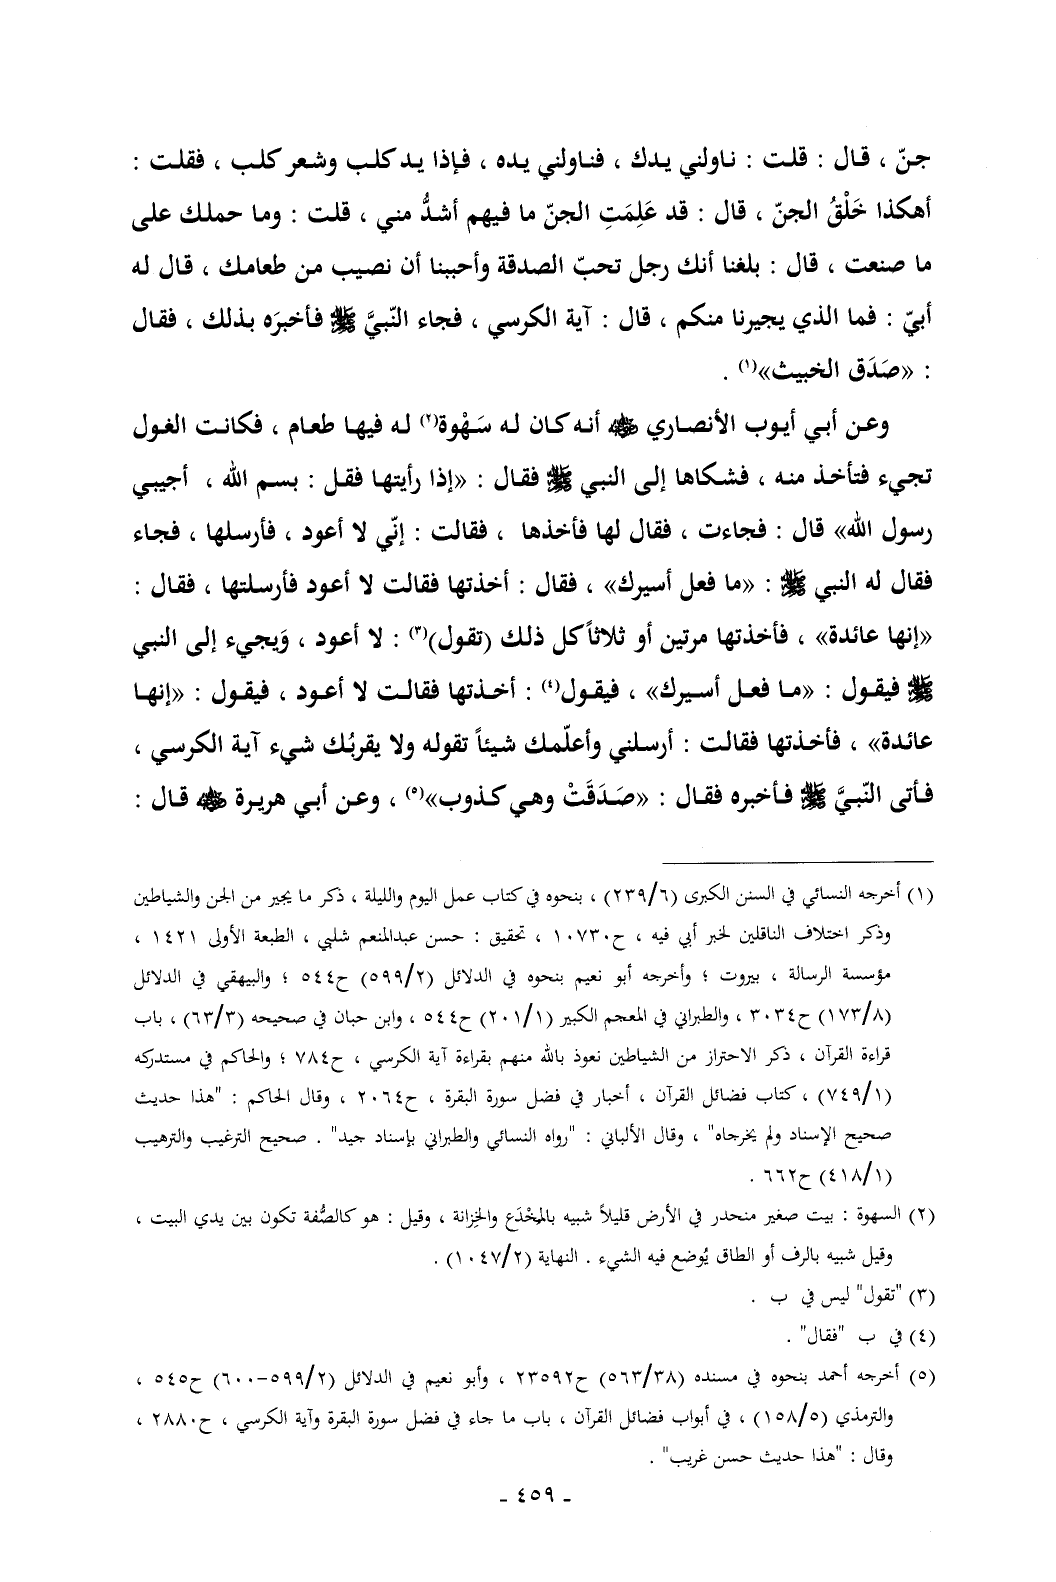 جنّ ، قال : قلت : ناولني يدك ، فناولني يده ، فإذا يد كلب وشعر كلب ، فقلت :
أهكذا خَلْقُ الجن ، قال : قد عَلِمَتِ الجنّ ما فيهم أشدُّ مني ، قلت : وما حملك على
ما صنعت ، قال : بلغنا أنك رجل تحبّ الصدقة وأحببنا أن نصيب من طعامك ، قال له
أبيّ : فما الذي يجيرنا منكم ، قال : آية الكرسي ، فجاء النّبيَّ ﷺ فأخبرَه بذلك ، فقال
: «صَدَق الخبيث»(١) .
وعن أبي أيوب الأنصاري ﵁ أنه كان له سَهْوة(٢) له فيها طعام ، فكانت الغول
تجيء فتأخذ منه ، فشكاها إلى النبي ﷺ فقال : «إذا رأيتها فقل : بسم الله ، أجيبي
رسول الله» قال : فجاءت ، فقال لها فأخذها ، فقالت : إنّي لا أعود ، فأرسلها ، فجاء
فقال له النبي ﷺ : «ما فعل أسيرك» ، فقال : أخذتها فقالت لا أعود فأرسلتها ، فقال :
«إنها عائدة» ، فأخذتها مرتين أو ثلاثاً كل ذلك (تقول)(٣) : لا أعود ، وَيجيء إلى النبي
ﷺ فيقول : «ما فعل أسيرك» ، فيقول(٤) : أخذتها فقالت لا أعود ، فيقول : «إنها
عائدة» ، فأخذتها فقالت : أرسلني وأعلّمك شيئاً تقوله ولا يقربُك شيء آية الكرسي ،
فأتى النّبيَّ ﷺ فأخبره فقال : «صَدَقَتْ وهي كذوب»(٥) ، وعن أبي هريرة ﵁ قال :
(١) أخرجه النسائي في السنن الكبرى (٢٣٩/٦) ، بنحوه في كتاب عمل اليوم والليلة ، ذكر ما يجير من الجن والشياطين
وذكر اختلاف الناقلين لخبر أبي فيه ، ح١٠٧٣٠ ، تحقيق : حسن عبدالمنعم شلبي ، الطبعة الأولى ١٤٢١ ،
مؤسسة الرسالة ، بيروت ؛ وأخرجه أبو نعيم بنحوه في الدلائل (٥٩٩/٢) ح٥٤٤ ؛ والبيهقي في الدلائل
(١٧٣/٨) ح٣٠٣٤ ، والطبراني في المعجم الكبير (٢٠١/١) ح٥٤٤ ، وابن حبان في صحيحه (٦٣/٣) ، باب
قراءة القرآن ، ذكر الاحتراز من الشياطين نعوذ بالله منهم بقراءة آية الكرسي ، ح٧٨٤ ؛ والحاكم في مستدركه
(٧٤٩/١) ، كتاب فضائل القرآن ، أخبار في فضل سورة البقرة ، ح٢٠٦٤ ، وقال الحاكم : "هذا حديث
صحيح الإسناد ولم يخرجاه" ، وقال الألباني : "رواه النسائي والطبراني بإسناد جيد" . صحيح الترغيب والترهيب
(٤١٨/١) ح٦٦٢ .
(٢) السهوة : بيت صغير منحدر في الأرض قليلاً شبيه بالمِخْدَع والخِزانة ، وقيل : هو كالصُّفة تكون بين يدي البيت ،
وقيل شبيه بالرف أو الطاق يُوضع فيه الشيء . النهاية (١٠٤٧/٢) .
(٣) "تقول" ليس في ب .
(٤) في ب "فقال" .
(٥) أخرجه أحمد بنحوه في مسنده (٥٦٣/٣٨) ح٢٣٥٩٢ ، وأبو نعيم في الدلائل (٥٩٩/٢-٦٠٠) ح٥٤٥ ،
والترمذي (١٥٨/٥) ، في أبواب فضائل القرآن ، باب ما جاء في فضل سورة البقرة وآية الكرسي ، ح٢٨٨٠ ،
وقال : "هذا حديث حسن غريب" .
- ٤٥٩ -